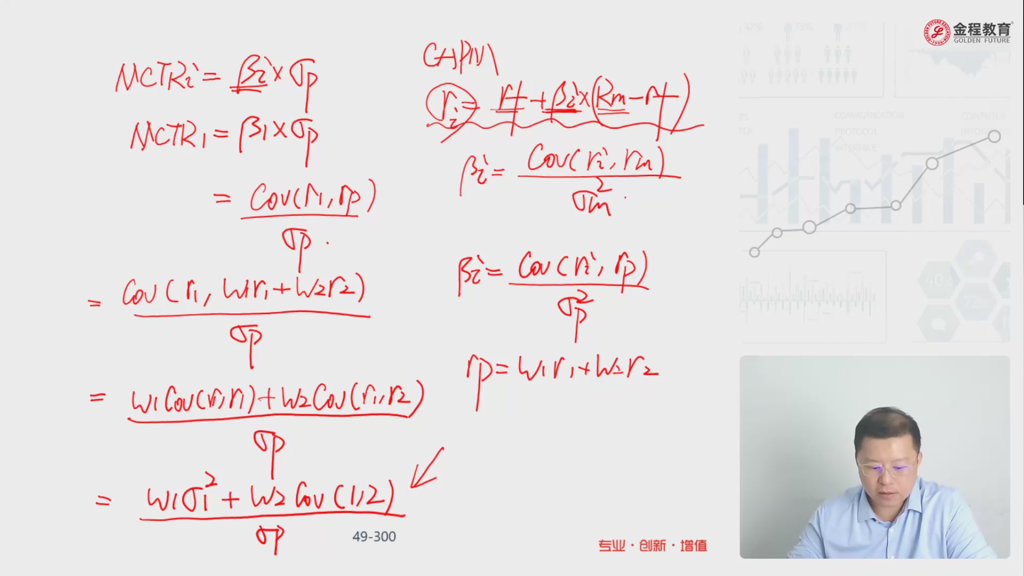 MCTRi = βi × σp
MCTR1 = β1 × σp
= Cov(r1, rp) / σp
= Cov(r1, w1r1 + w2r2) / σp
= w1Cov(r1, r1) + w2Cov(r1, r2) / σp
= w1σ1² + w2Cov(1,2) / σp
CAPM
ri = rf + βi × (Rm - rf)
βi = Cov(ri, rm) / σm²
βi = Cov(ri, rp) / σp²
rp = w1r1 + w2r2
49-300
专业·创新·增值
金程教育
GOLDEN FUTURE